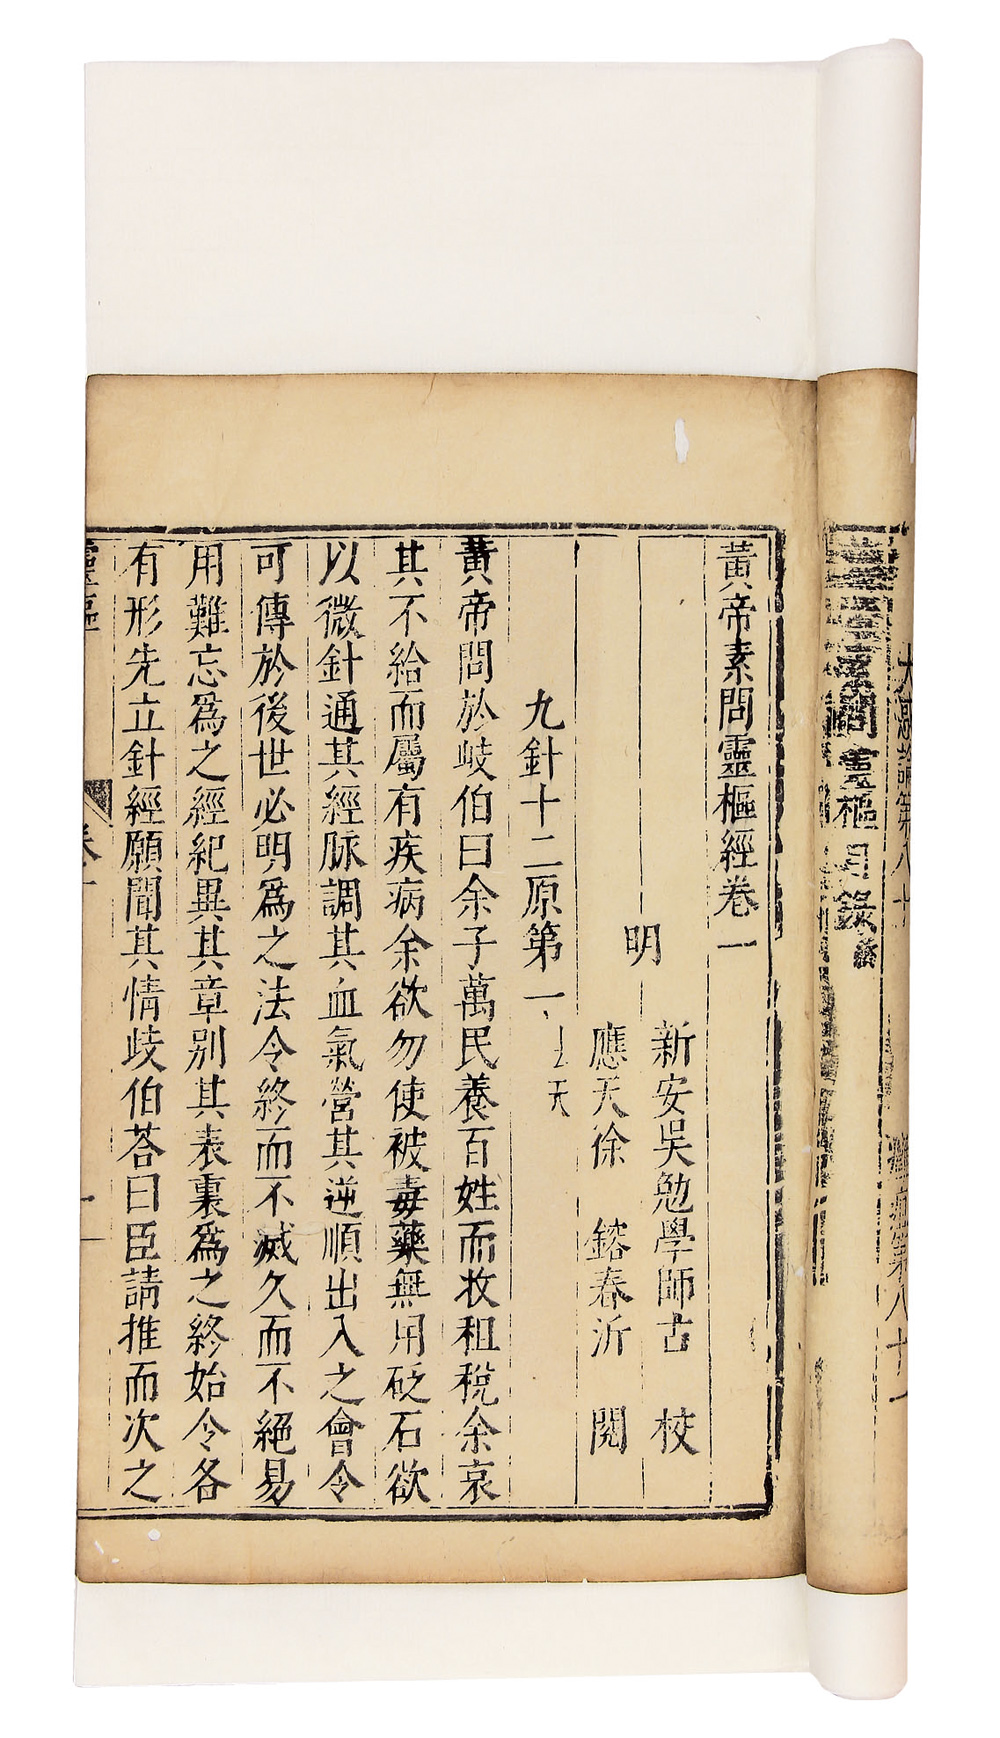 大惑論第八十
癰疽第八十一
素問靈樞目錄終
黃帝素問靈樞經卷一
明
新安吳勉學師古 校
應天徐 鎔春沂 閱
九針十二原第一
天
黃帝問於岐伯曰余子萬民養百姓而收租稅余哀
其不給而屬有疾病余欲勿使被毒藥無用砭石欲
以微針通其經脉調其血氣營其逆順出入之會令
可傳於後世必明爲之法令終而不滅久而不絕易
用難忘爲之經紀異其章別其表裏爲之終始令各
有形先立針經願聞其情歧伯荅曰臣請推而次之
靈樞 卷一 一